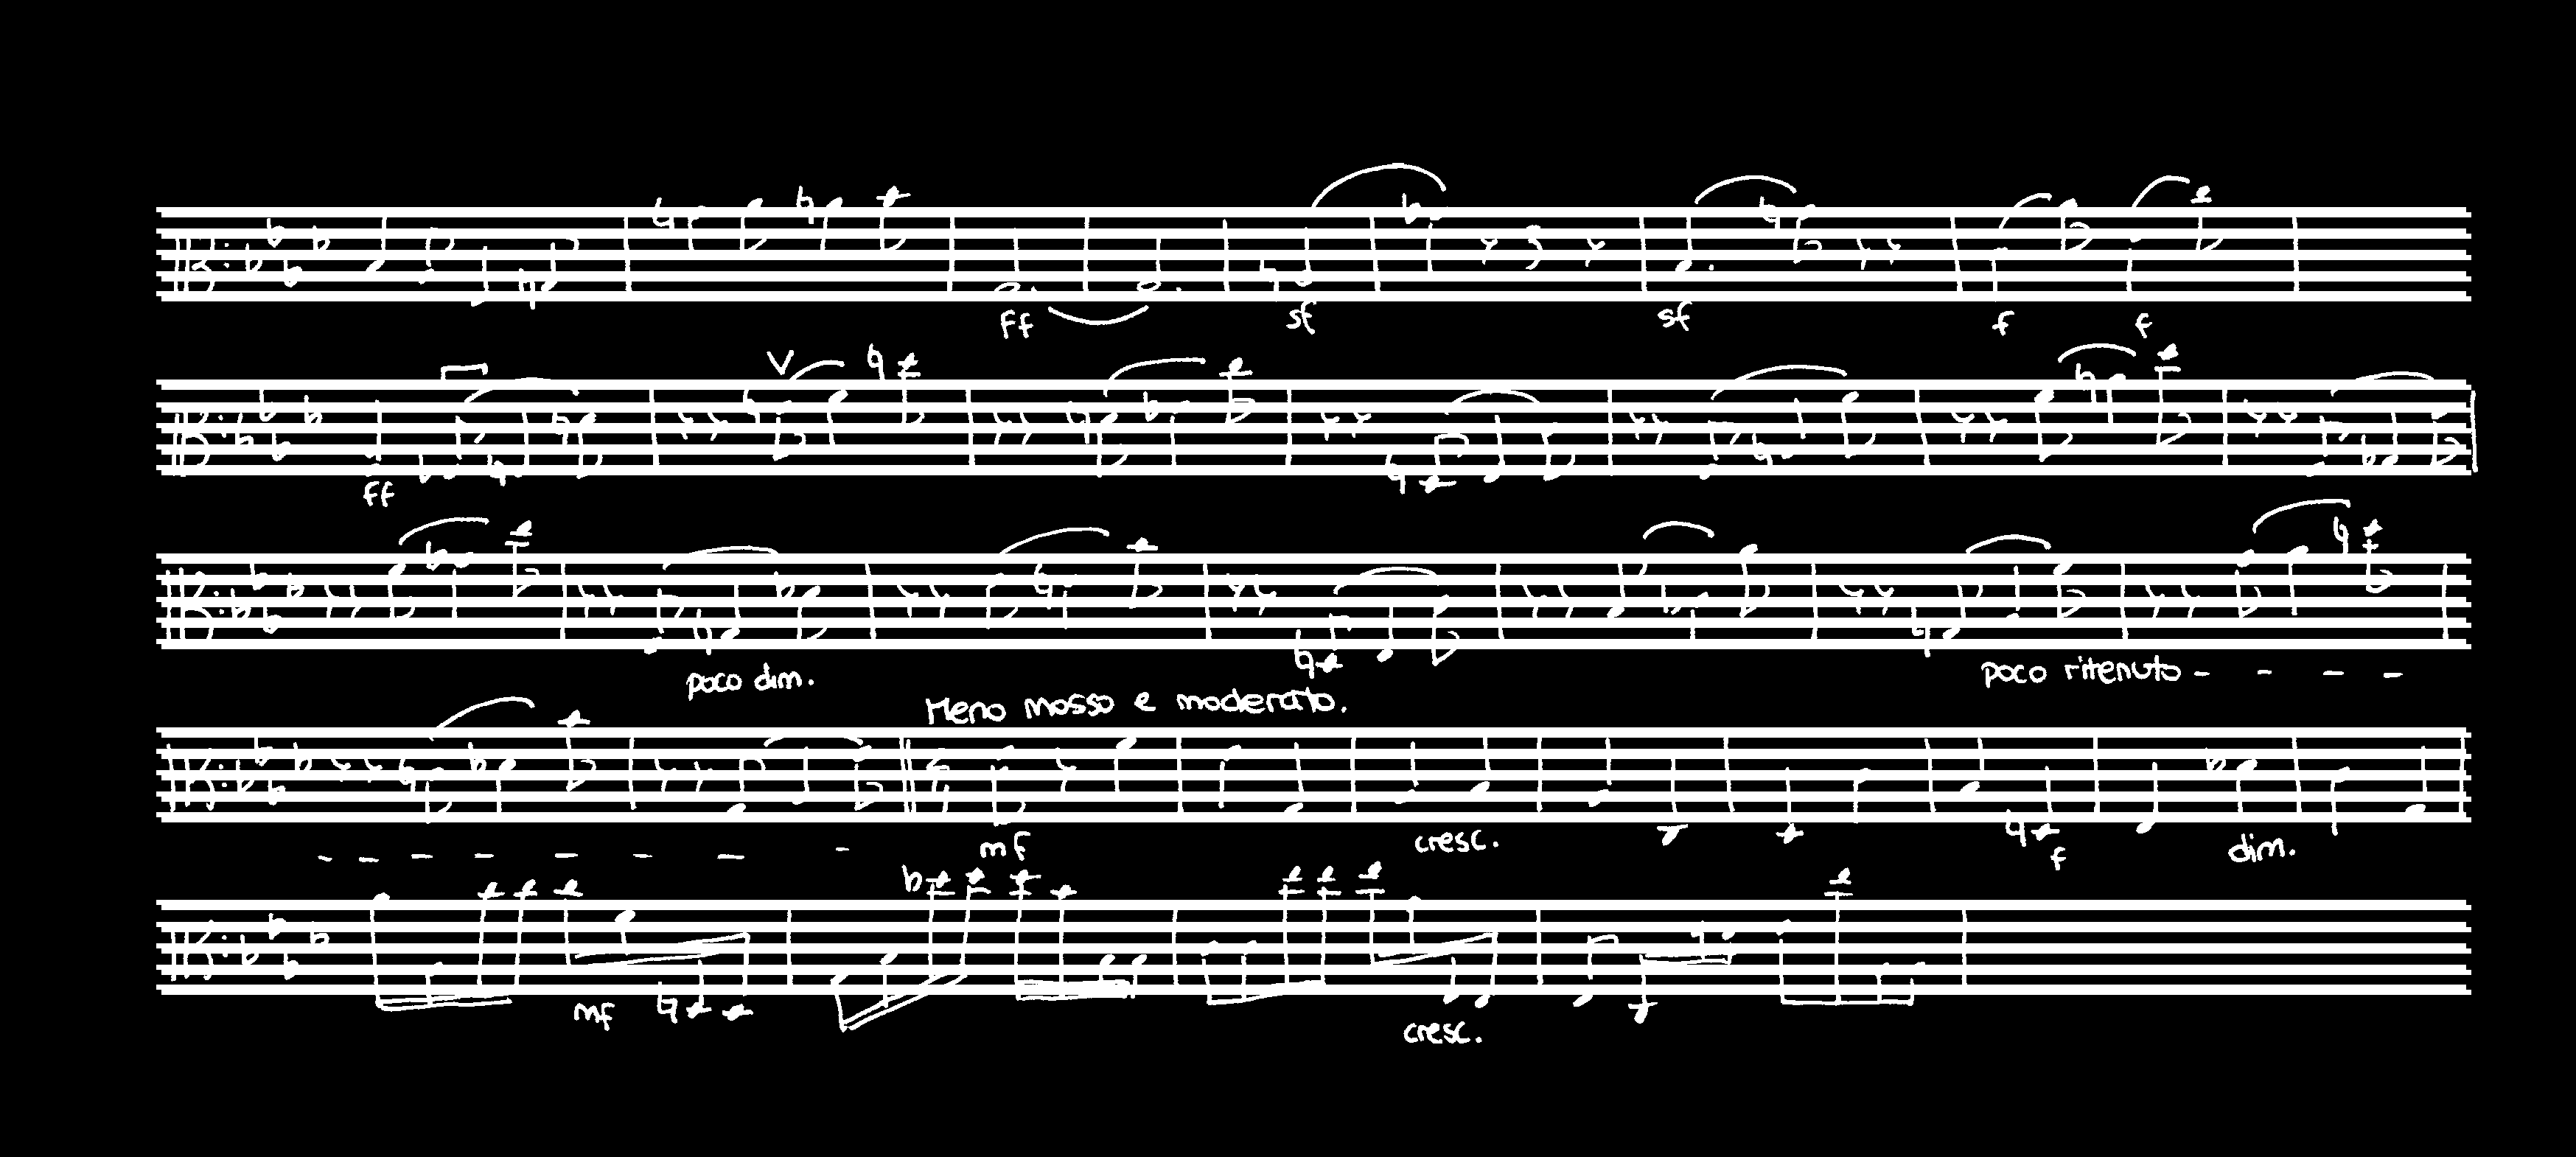 ff sf sf f f
ff
poco dim. poco ritenuto - - - -
Meno mosso e moderato.
- - - - - - - - mf cresc. f dim.
mf cresc.